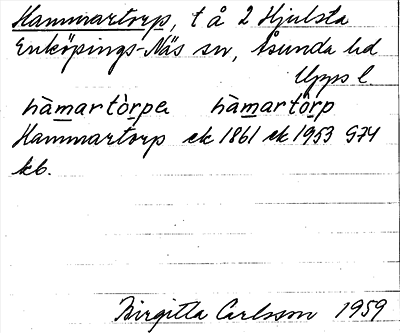 Hammartorp, t å 2 Hjulsta
Enköpings-Näs sn, Åsunda hd
Upps l.
hàmartòrpe hàmartòrp
Hammartorp ek 1861 ek 1953 974
kb.
Birgitta Carlsson 1959